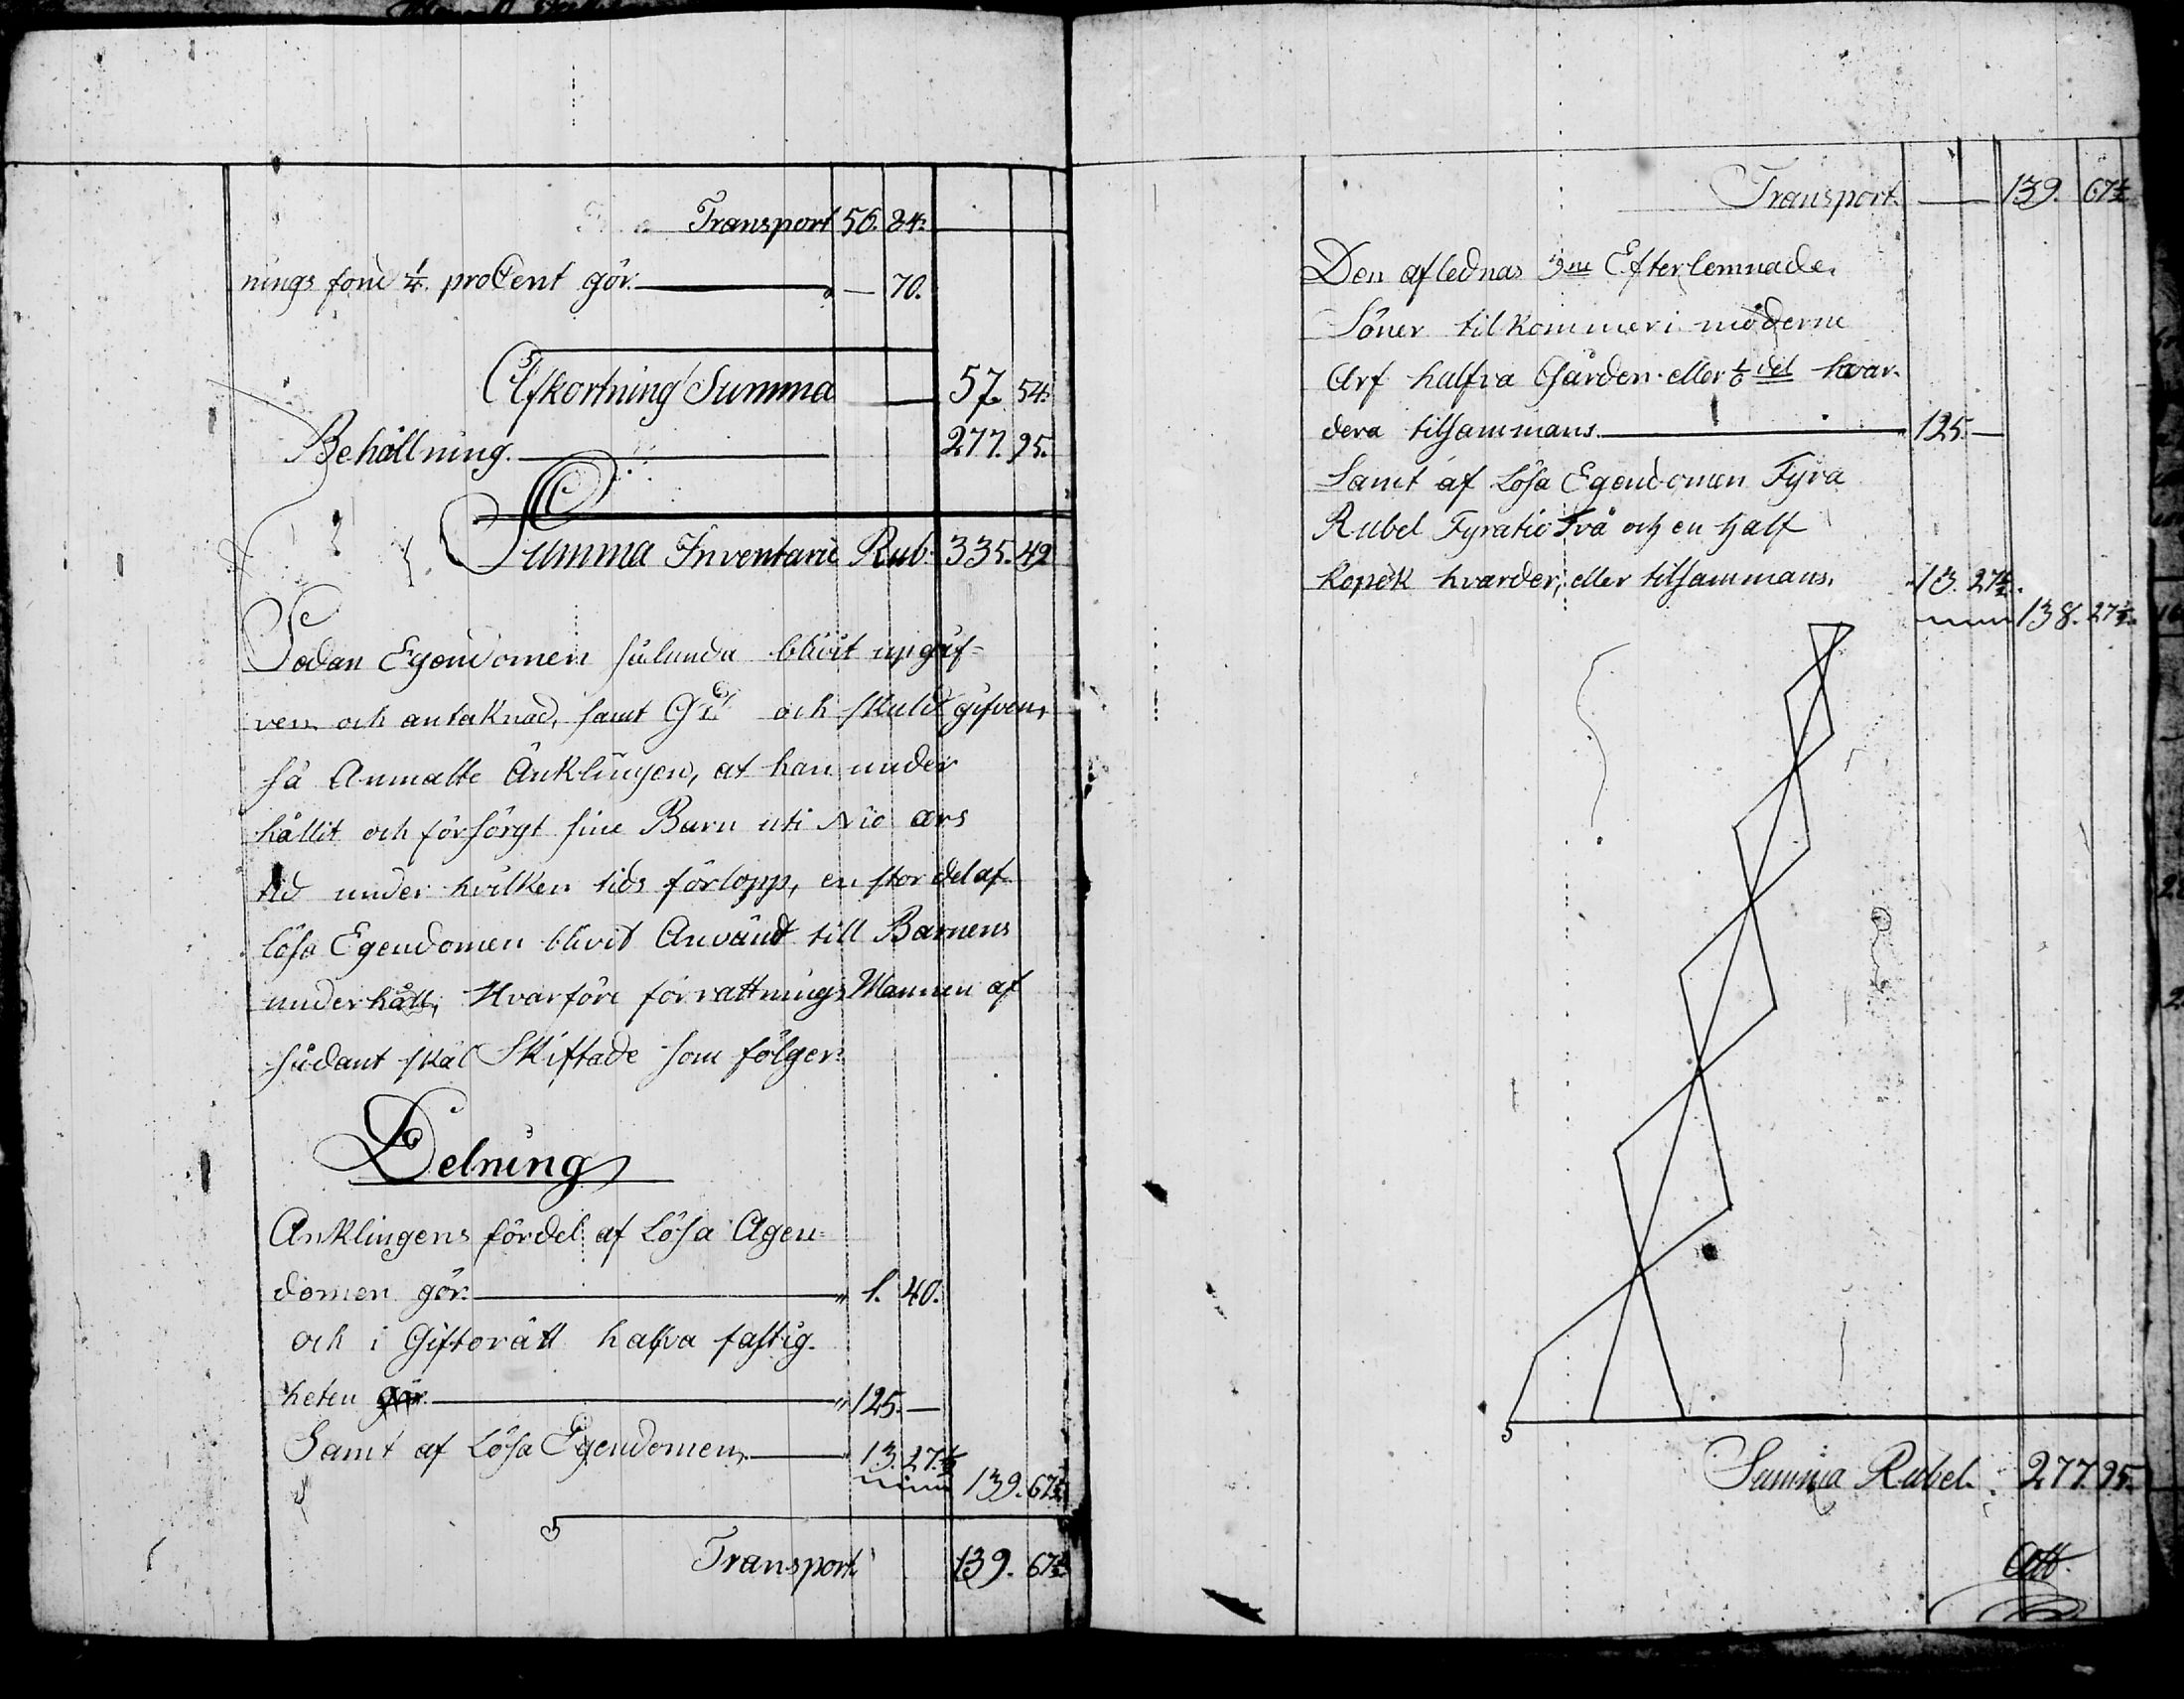 Transport 56. 84.
nings fond ¼. proCent gör. — 70.
Afkortning Summa 57. 54.
Behållning. 277. 95.
Summa Inventarie Rub. 335. 49
Sedan Egendomen sålunda blivit upgif-
ven och anteknad, samt och skuld gifven,
så Anmälte Änklingen, at han under
hållit och försörgt sine Barn uti Nio ars
tid under hvilken tids förlopp, en stor del af
lösa Egendomen blivit Använd till Barnens
underhåll, Hvarföre förrättnings Mannen af
sådant skäl Skiftade som följer.
Delning
Anklingens fördel af Lösa Agen-
domen gör. " 1. 40.
och i Giftorätt halfva fastig-
heten gör. " 125. —
Samt af Lösa Egendomen, " 13. 27.½
139. 67½.
Transport 139. 67½.
Transport. — 139. 67½.
Den aflednas 3ne Efterlemnade
Söner tilkommer i möderne
Arf halfva Gården eller ⅙ del hvar-
dera tilsammans. 125. —
Samt af Lösa Egendomen Fyra
Rubel Fyratio Två och en half
kopek hvarder, eller tilsammans. " 13. 27½.
138. 27½.
Summa Rubel. 277. 95.
Att